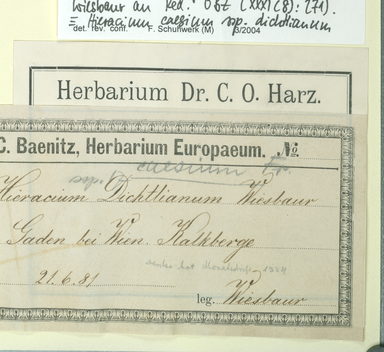 Wiesbaur an Red. ÖBZ (XXXI(8): 271).
≡ Hieracium caesium ssp. dichtlianum
det. rev. conf. F. Schuhwerk (M) 3/2004
Herbarium Dr. C. O. Harz.
C. Baenitz, Herbarium Europaeum. No.
caesium Fr.
ssp.
Hieracium Dichtlianum Wiesbaur
Gaden bei Wien. Kalkberge
1884
21.6.81
leg. Wiesbaur